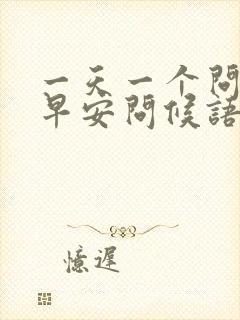 一天一个問
早安問候語
憶遲